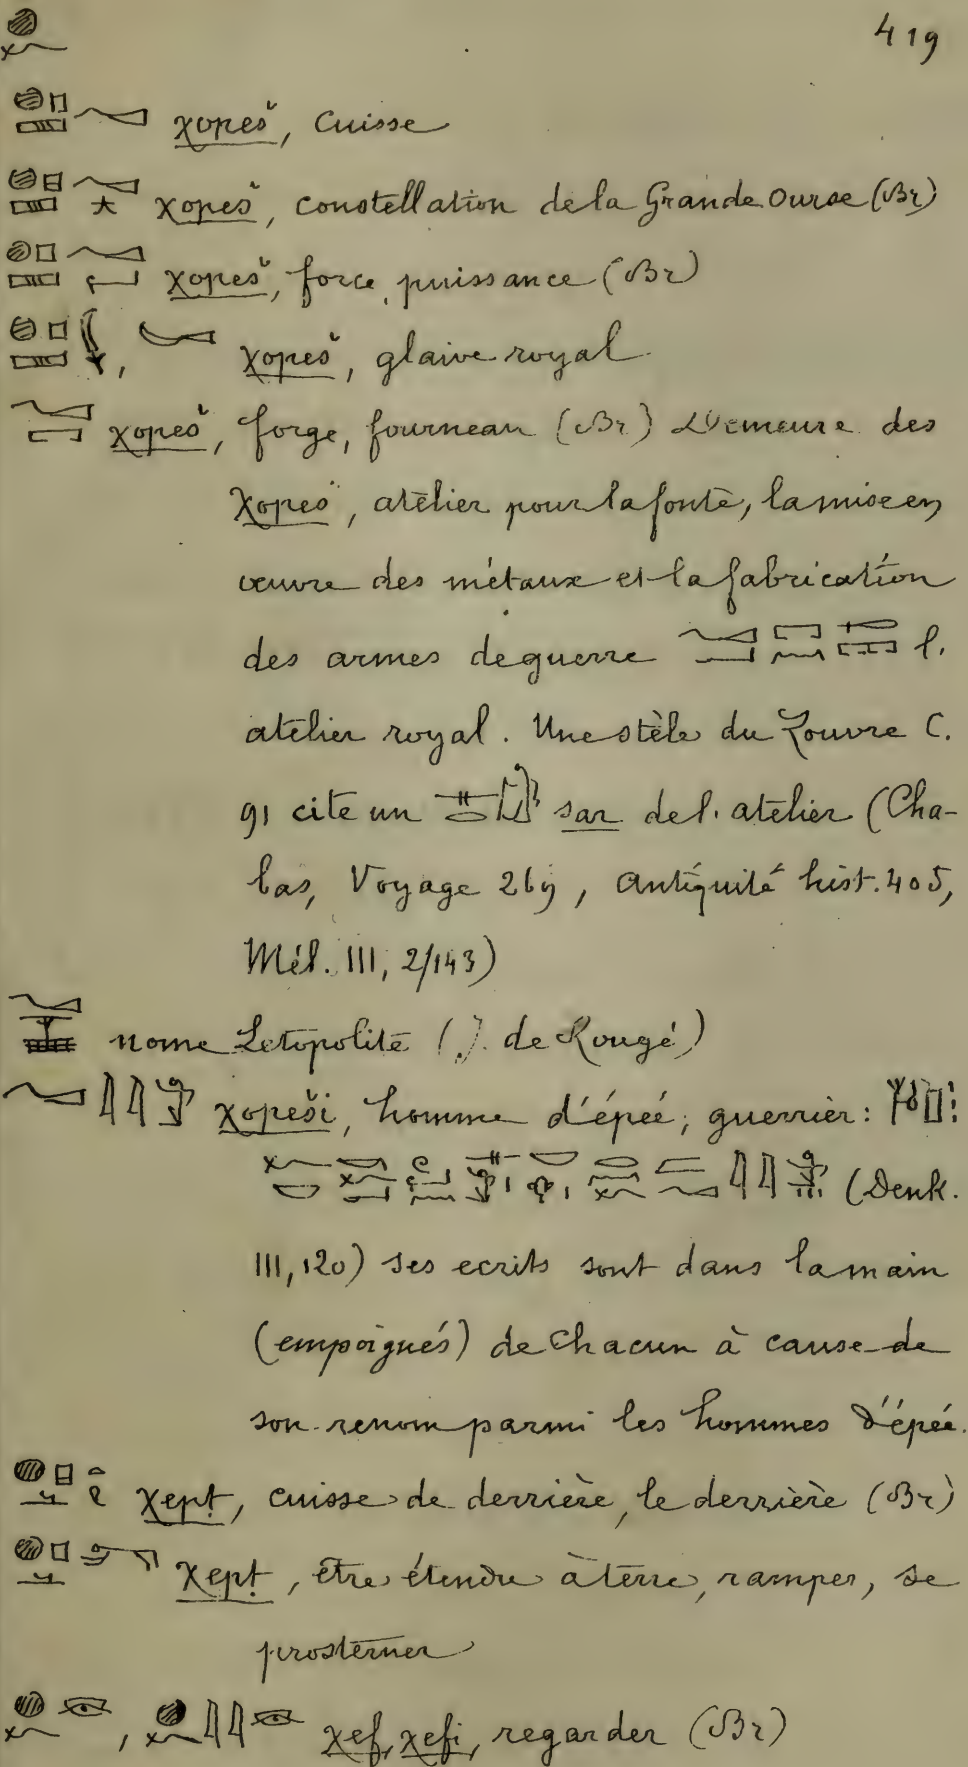 419
χopeš, cuisse
χopeš, constellation de la Grande Ourse (Br)
χopeš, force, puissance (Br)
, χopeš, glaive royal.
χopeš, forge, fourneau (Br) Demeure des
χopeš, atelier pour la fonte, la mise en
œuvre des métaux et la fabrication
des armes de guerre l.
atelier royal. Une stèle du Louvre C.
91 cite un sar de l. atelier (Cha-
bas, Voyage 269, Antiquité hist. 405,
Mél. III, 2/143)
nome Letopolite (J. de Rougé)
χopeši, homme d'épée, guerrier:
(Denk.
III, 120) ses ecrits sont dans la main
(empoignés) de chacun à cause de
son renom parmi les hommes d'épée.
χept, cuisse de derrière, le derrière (Br)
χept, être étendu à terre, ramper, se
prosterner
, χef, χefi, regarder (Br)